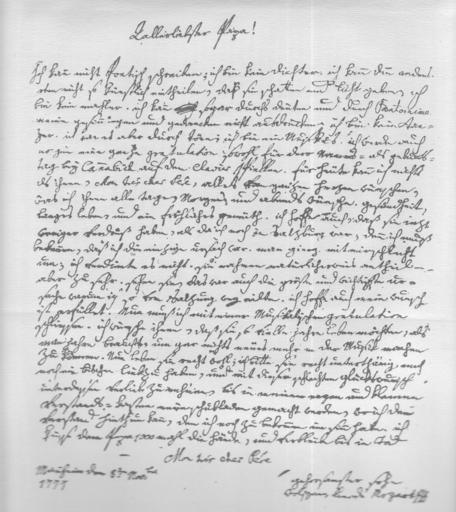 Allerliebster Papa!
Ich kan nicht Poetisch schreiben; ich bin kein dichter. ich kan die redens-
arten nicht so künstlich eintheilen, daß sie schatten und licht geben; ich
bin kein mahler. ich kan sogar durchs deüten und durch Pantomime
meine gesinnungen und gedancken nicht ausdrücken; ich bin kein tan-
zer. ich kan es aber durch töne; ich bin ein Musikus. ich werde auch
morgen eine ganze gratulation sowohl für dero Namens- als geburts-
tag bey Canabich auf dem Clavier spiellen. für heüte kan ich nichts
als ihnen, Mon trés cher Pére, alles vom ganzen herzen wünschen,
was ich ihnen alle tage, Morgens und abends wünsche. gesundheit,
langes leben, und ein fröhliches gemüth. ich hoffe auch, daß sie iezt
weniger verdruß haben, als da ich noch in salzburg war; denn ich muß
bekennen, daß ich die einzige ursach war. man gieng mit mir schlecht
um; ich verdiente es nicht. sie nahmen natürlicherweis antheil -
aber zu sehr. sehen sie, das war auch die gröste und wichtigste ur-
sache warum ich so von salzburg weg eilte. ich hoffe auch mein wunsch
ist erfüllet. Nun muß ich mit einer Musikalischen gratulation
schliessen. ich wünsche ihnen, daß sie so vielle jahre leben möchten, als
man jahre braucht, um gar nichts neües mehr in der Musick machen
zu können. Nun leben sie recht wohl; ich bitte sie recht unterthänig, mich
noch ein bischen lieb zu haben, und mit diesem schlechten glückwunsch
unterdessen verlieb zu nehmen, bis in meinem engen und kleinen
verstands-kasten neüe schubladen gemacht werden, wo ich den
verstand hinthun kan, den ich noch zu bekommen im sinn habe. ich
küsse dem Papa 1000 mahl die hände, und verbleibe bis in tod
Mon trés cher Pére
Manheim den 8:ten Nov:bre
1777
gehorsamster sohn
Wolfgang Amadé Mozart